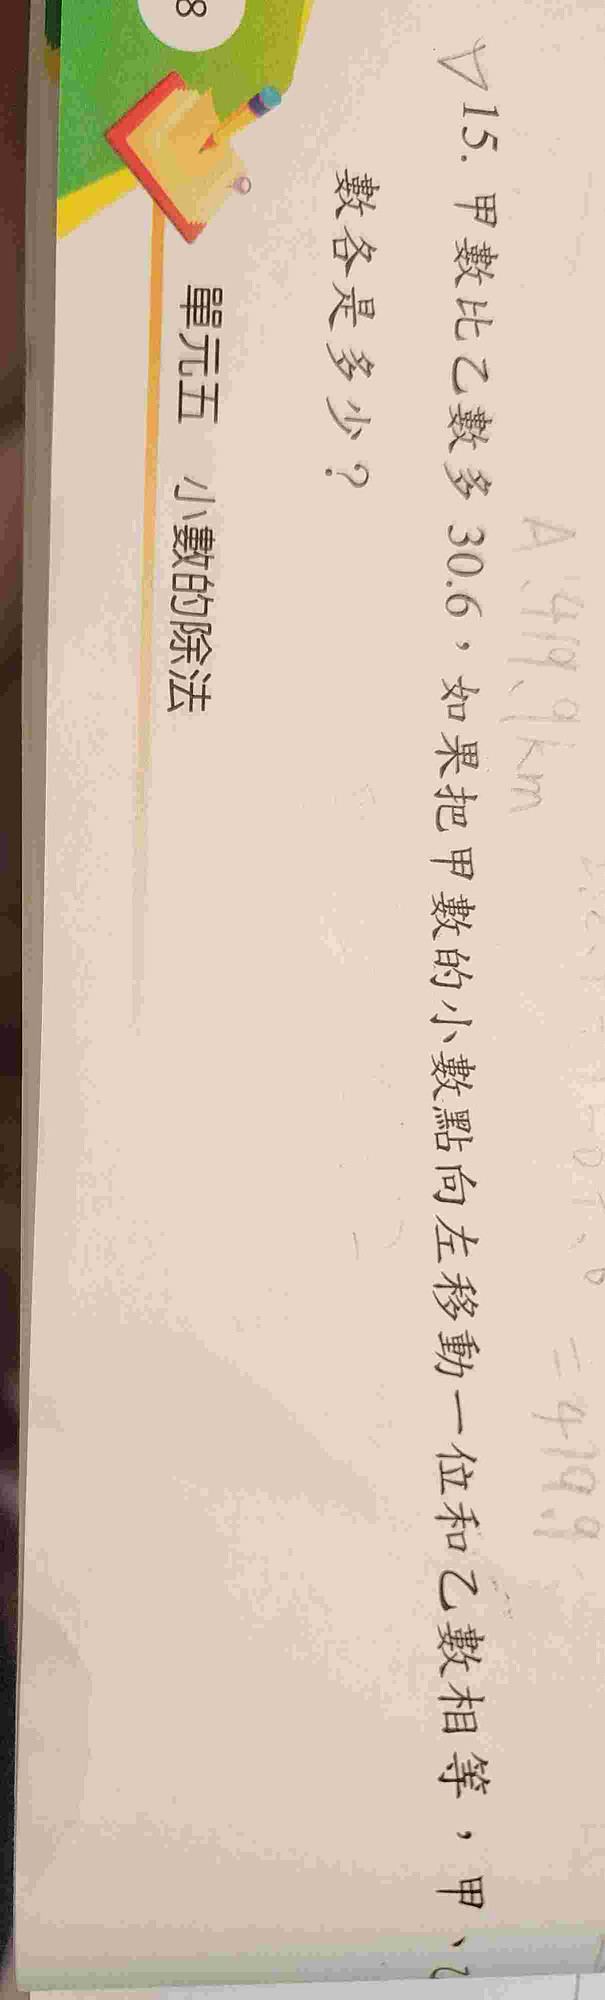 A:419.9km
=419.9
15. 甲數比乙數多 30.6，如果把甲數的小數點向左移動一位和乙數相等，甲、乙
數各是多少？
單元五 小數的除法
8